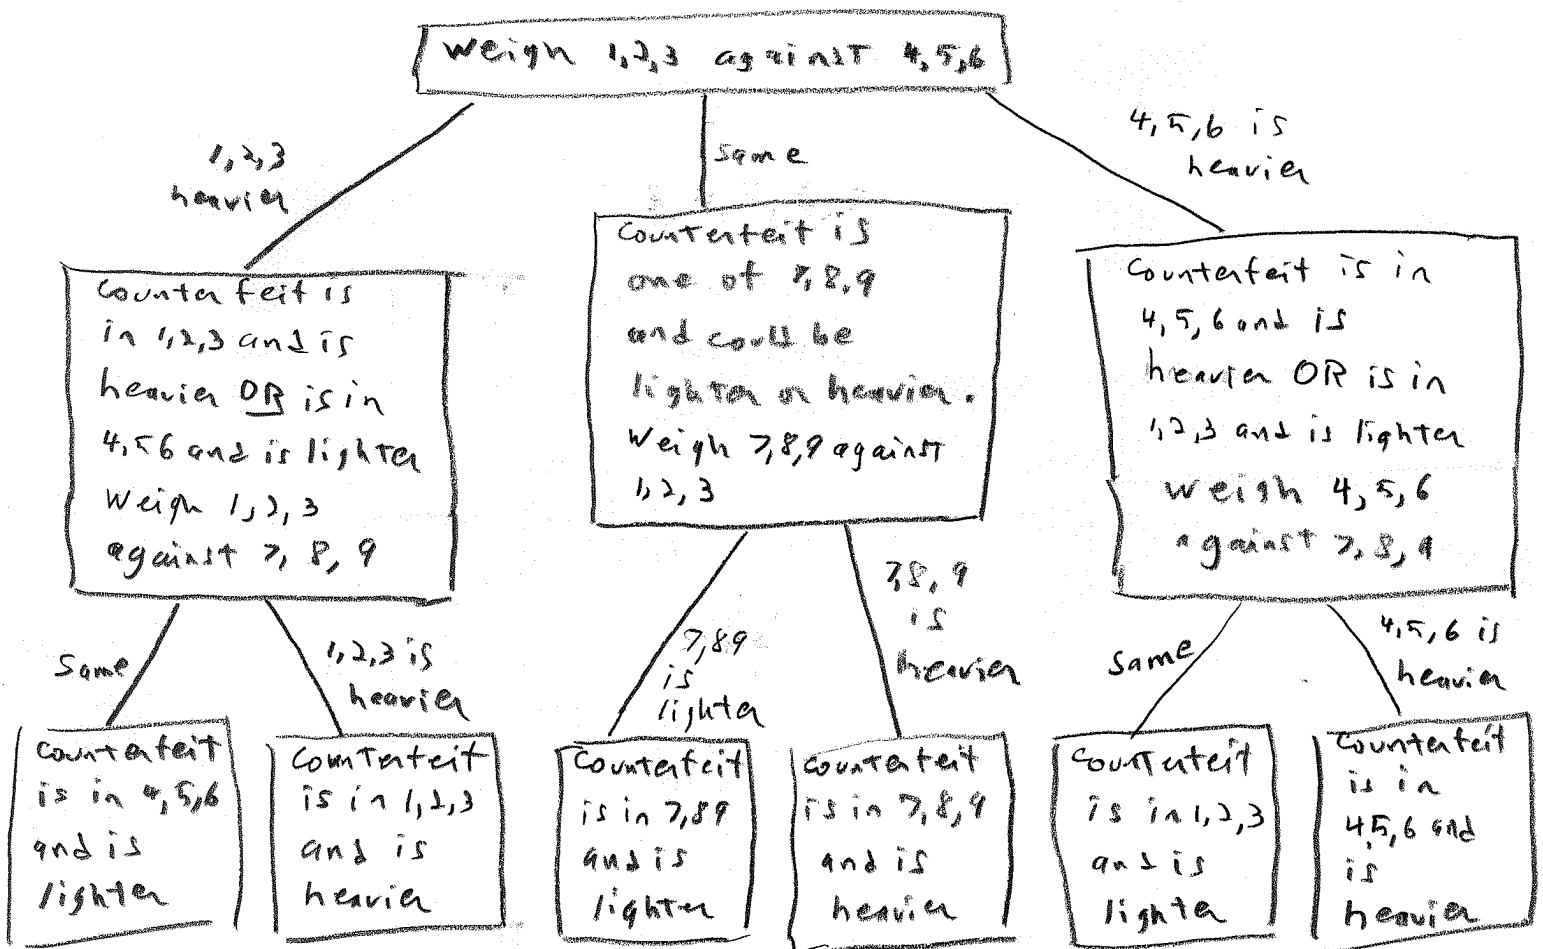 Weigh 1,2,3 against 4,5,6
1,2,3
heavier
same
4,5,6 is
heavier
Counterfeit is
in 1,2,3 and is
heavier OR is in
4,56 and is lighter
Weigh 1,2,3
against 7, 8, 9
Counterfeit is
one of 7,8,9
and could be
lighter or heavier.
Weigh 7,8,9 against
1,2,3
Counterfeit is in
4,5,6 and is
heavier OR is in
1,2,3 and is lighter
weigh 4,5,6
against 7,8,9
same
1,2,3 is
heavier
7,89
is
lighter
7,8,9
is
heavier
same
4,5,6 is
heavier
Counterfeit
is in 4,5,6
and is
lighter
Counterfeit
is in 1,2,3
and is
heavier
Counterfeit
is in 7,89
and is
lighter
Counterfeit
is in 7,8,9
and is
heavier
Counterfeit
is in 1,2,3
and is
lighter
Counterfeit
is in
4,5,6 and
is
heavier